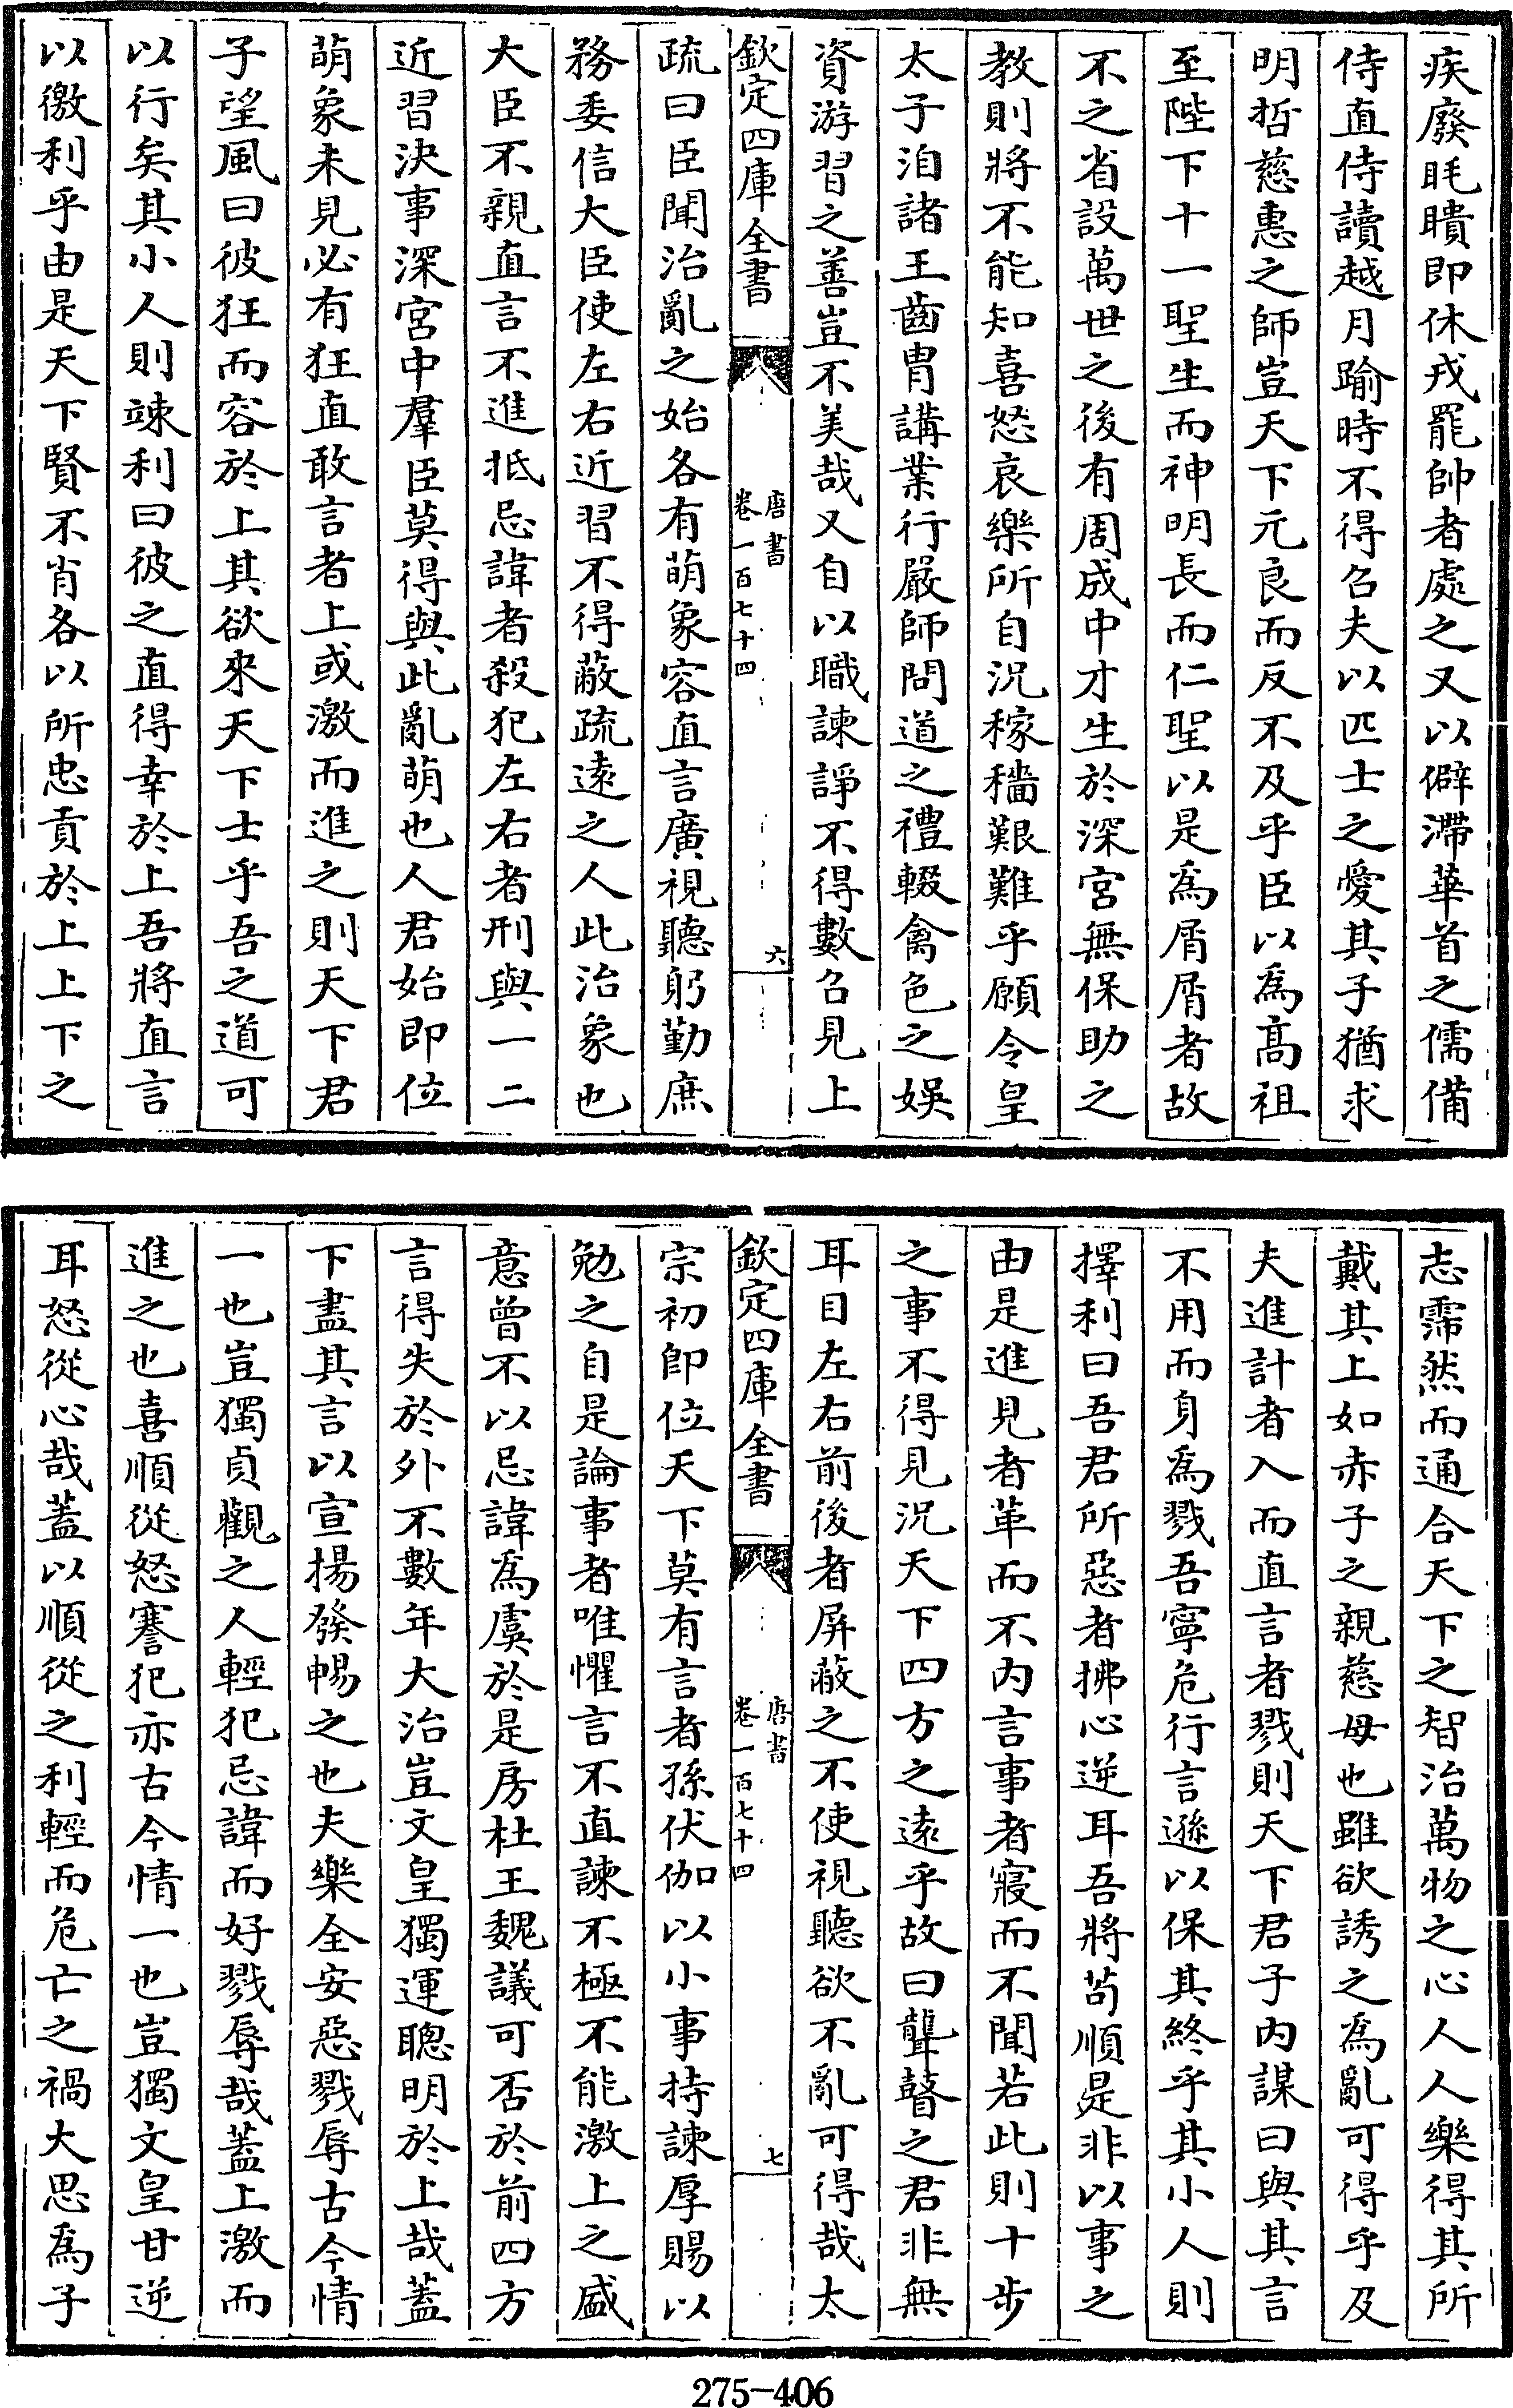 疾廢眊聵即休戎罷帥者處之又以僻滯華首之儒備
侍直侍讀越月踰時不得召夫以匹士之愛其子猶求
明哲慈惠之師豈天下元良而反不及乎臣以為高祖
至陛下十一聖生而神明長而仁聖以是為屑屑者故
不之省設萬世之後有周成中才生於深宮無保助之
教則將不能知喜怒哀樂所自況稼穡艱難乎願令皇
太子洎諸王齒胄講業行嚴師問道之禮輟禽色之娛
資游習之善豈不美哉又自以職諫諍不得數召見上
欽定四庫全書
唐書
卷一百七十四
六
疏曰臣聞治亂之始各有萌象容直言廣視聽躬勤庶
務委信大臣使左右近習不得蔽疏遠之人此治象也
大臣不親直言不進抵忌諱者殺犯左右者刑與一二
近習決事深宮中羣臣莫得與此亂萌也人君始即位
萌象未見必有狂直敢言者上或激而進之則天下君
子望風曰彼狂而容於上其欲來天下士乎吾之道可
以行矣其小人則竦利曰彼之直得幸於上吾將直言
以徼利乎由是天下賢不肖各以所忠貢於上上下之
志霈然而通合天下之智治萬物之心人人樂得其所
戴其上如赤子之親慈母也雖欲誘之為亂可得乎及
夫進計者入而直言者戮則天下君子內謀曰與其言
不用而身為戮吾寧危行言遜以保其終乎其小人則
擇利曰吾君所惡者拂心逆耳吾將苟順是非以事之
由是進見者革而不內言事者寢而不聞若此則十步
之事不得見況天下四方之遠乎故曰聾瞽之君非無
耳目左右前後者屏蔽之不使視聽欲不亂可得哉太
欽定四庫全書
唐書
卷一百七十四
七
宗初即位天下莫有言者孫伏伽以小事持諫厚賜以
勉之自是論事者唯懼言不直諫不極不能激上之盛
意曾不以忌諱為虞於是房杜王魏議可否於前四方
言得失於外不數年大治豈文皇獨運聰明於上哉蓋
下盡其言以宣揚發暢之也夫樂全安惡戮辱古今情
一也豈獨貞觀之人輕犯忌諱而好戮辱哉蓋上激而
進之也喜順從怒謇犯亦古今情一也豈獨文皇甘逆
耳怒從心哉蓋以順從之利輕而危亡之禍大思為子
275-406